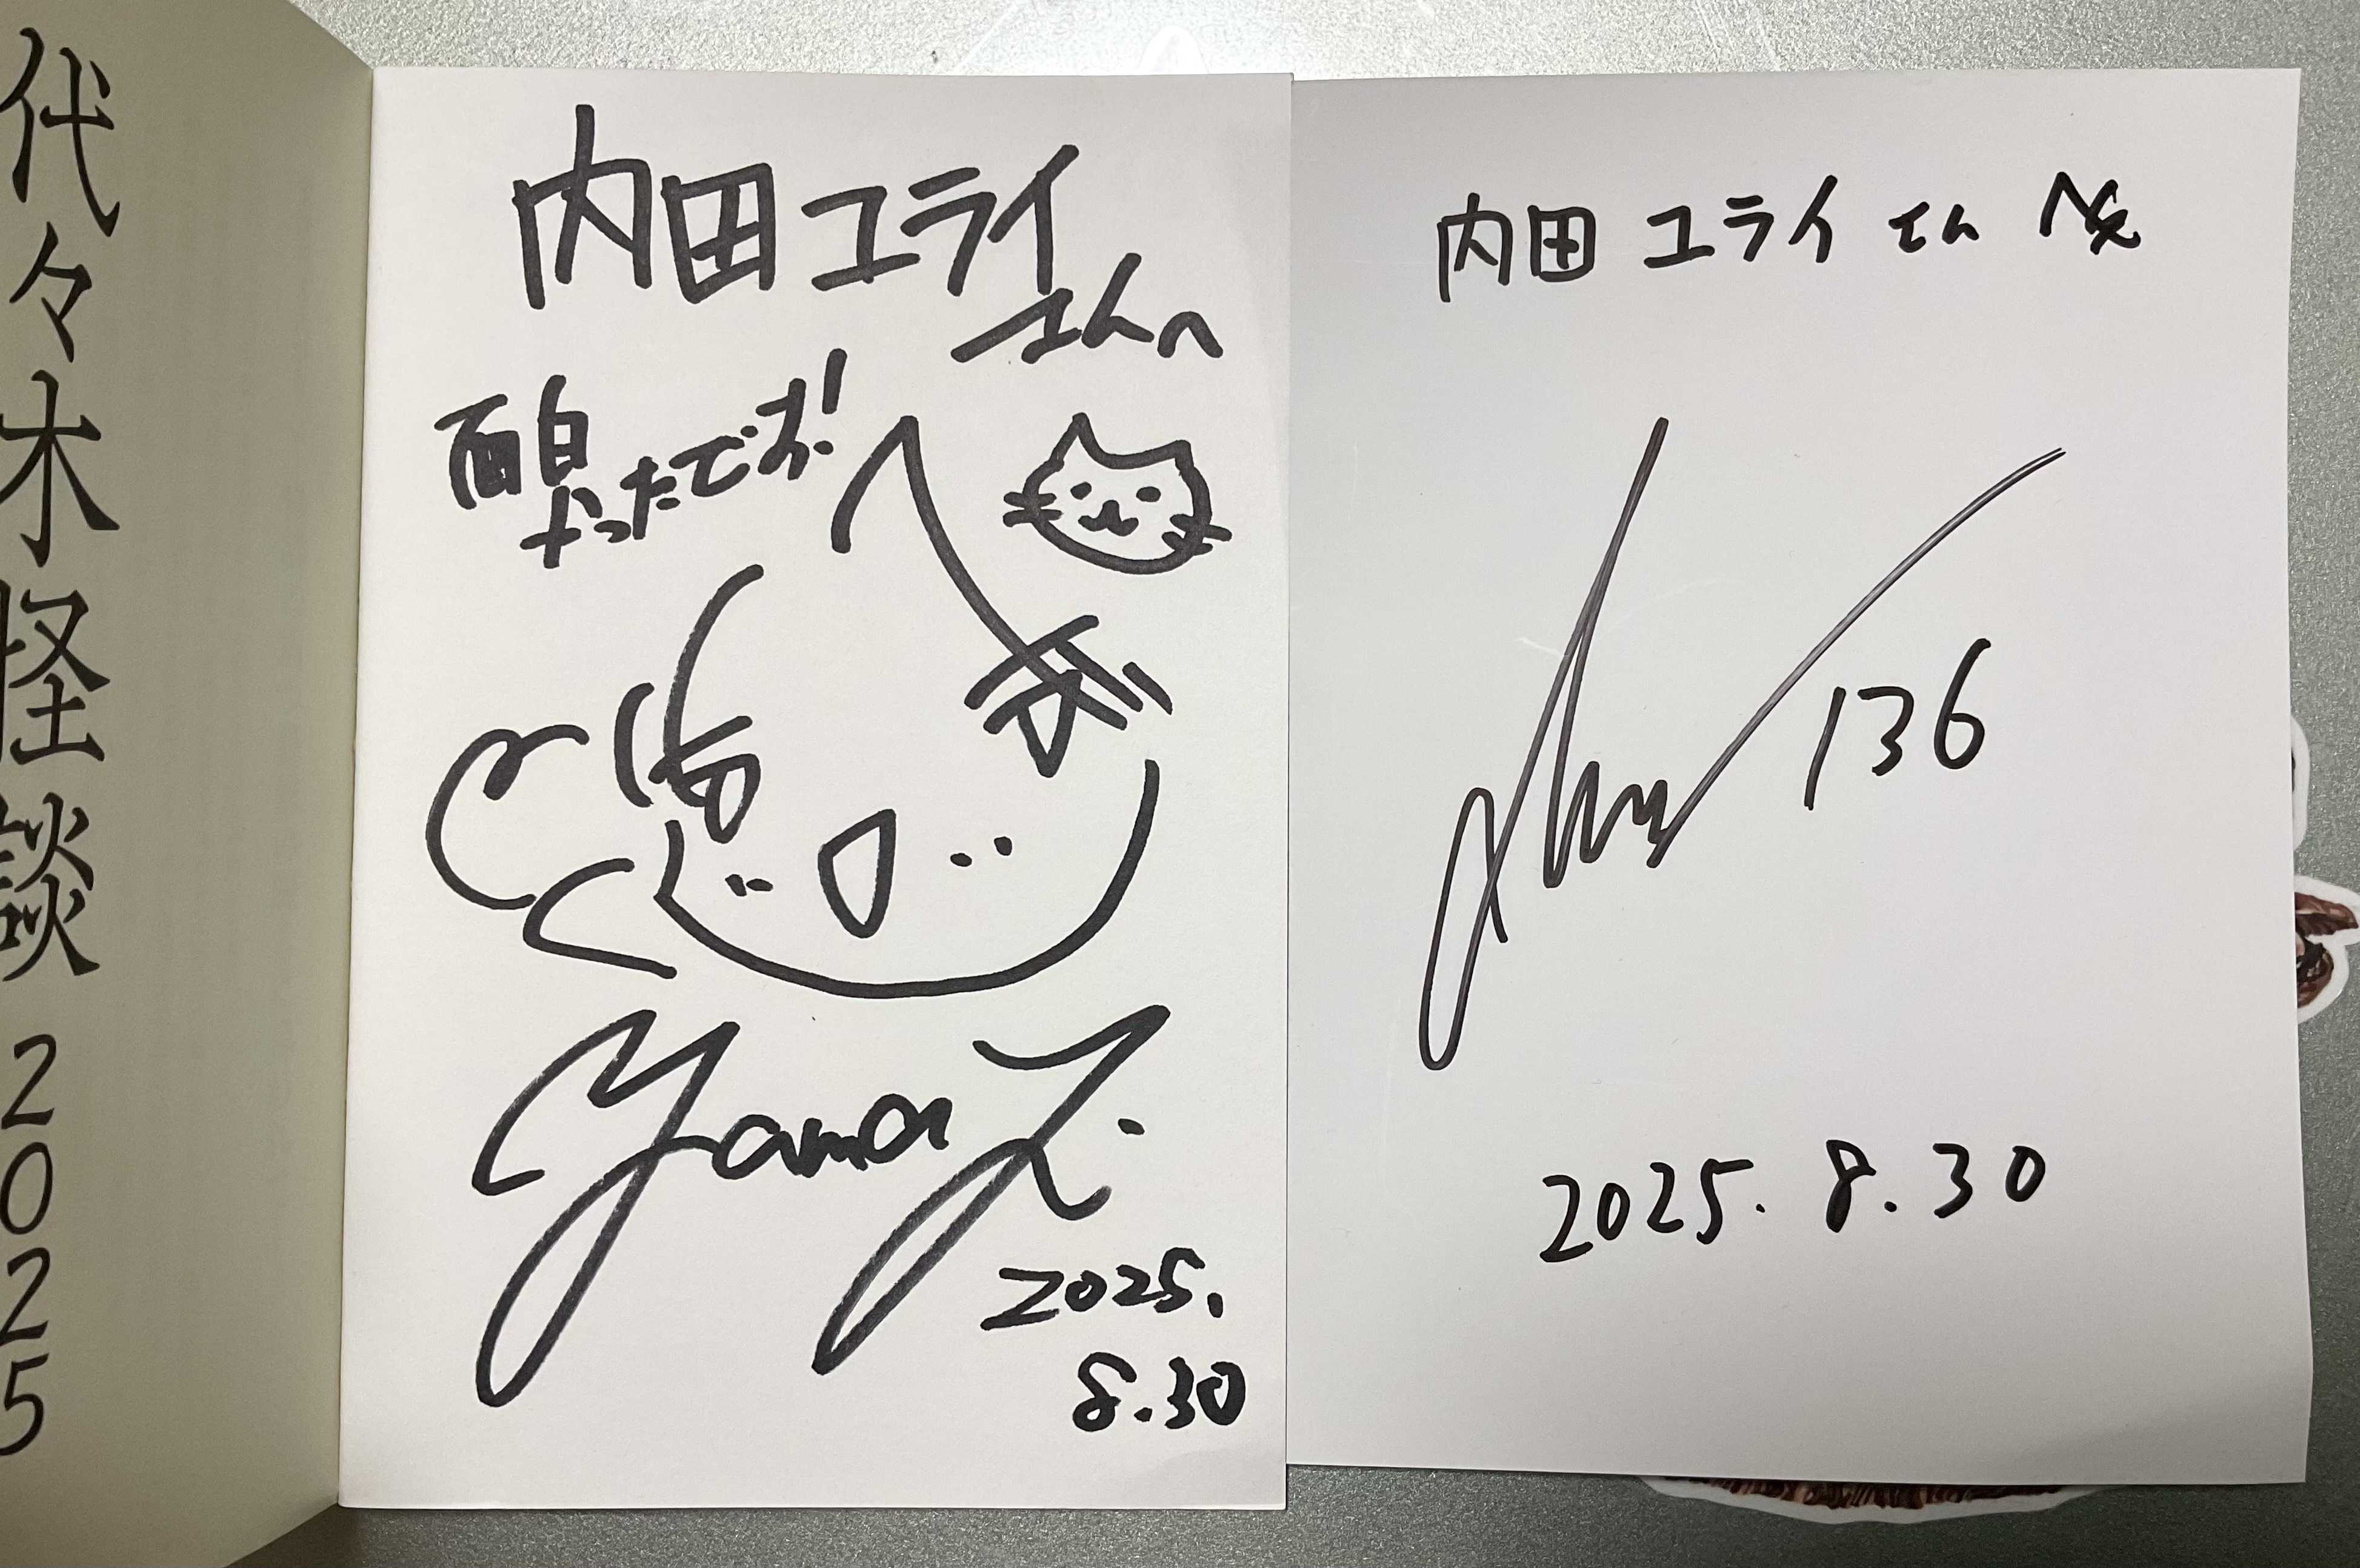 代々木怪談2025
内田ユライ
さんへ
面白
かったです!
yamaz.
2025.
8.30
内田 ユライ さん へ
136
2025. 8. 30